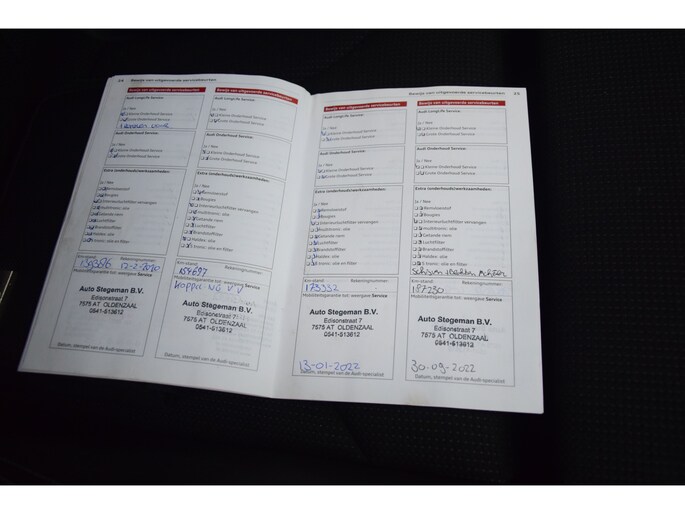 Bewijs van uitgevoerde servicebeurten
Bewijs van uitgevoerde servicebeurten
Audi LongLife Service
Ja / Nee
Kleine Onderhoud Service
Grote Onderhoud Service
Audi Onderhoud Service
Ja / Nee
Kleine Onderhoud Service
Grote Onderhoud Service
Extra (onderhouds)werkzaamheden:
Ja / Nee
Remvloeistof
Bougies
Interieurluchtfilter vervangen
multitronic: olie
Getande riem
Luchtfilter
Brandstoffilter
Haldex: olie
S tronic: olie en filter
12-2-2020
Rekeningnummer:
Mobiliteitsgarantie tot: weergave Service
Auto Stegeman B.V.
Edisonstraat 7
7575 AT OLDENZAAL
0541-513612
Datum, stempel van de Audi-specialist
Bewijs van uitgevoerde servicebeurten
Audi LongLife Service
Ja / Nee
Kleine Onderhoud Service
Grote Onderhoud Service
Audi Onderhoud Service
Ja / Nee
Kleine Onderhoud Service
Grote Onderhoud Service
Extra (onderhouds)werkzaamheden:
Ja / Nee
Remvloeistof
Bougies
Interieurluchtfilter vervangen
multitronic: olie
Getande riem
Luchtfilter
Brandstoffilter
Haldex: olie
S tronic: olie en filter
Km-stand:
Rekeningnummer:
154697
Mobiliteitsgarantie tot: weergave Service
Auto Stegeman B.V.
Edisonstraat 7
7575 AT OLDENZAAL
0541-513612
Datum, stempel van de Audi-specialist
Bewijs van uitgevoerde servicebeurten 25
Bewijs van uitgevoerde servicebeurten
Audi LongLife Service
Ja / Nee
Kleine Onderhoud Service
Grote Onderhoud Service
Audi Onderhoud Service
Ja / Nee
Kleine Onderhoud Service
Grote Onderhoud Service
Extra (onderhouds)werkzaamheden:
Ja / Nee
Remvloeistof
Bougies
Interieurluchtfilter vervangen
multitronic: olie
Getande riem
Luchtfilter
Brandstoffilter
Haldex: olie
S tronic: olie en filter
Km-stand:
Rekeningnummer:
173332
Mobiliteitsgarantie tot: weergave Service
Auto Stegeman B.V.
Edisonstraat 7
7575 AT OLDENZAAL
0541-513612
13-01-2022
Datum, stempel van de Audi-specialist
Bewijs van uitgevoerde servicebeurten
Audi LongLife Service
Ja / Nee
Kleine Onderhoud Service
Grote Onderhoud Service
Audi Onderhoud Service
Ja / Nee
Kleine Onderhoud Service
Grote Onderhoud Service
Extra (onderhouds)werkzaamheden:
Ja / Nee
Remvloeistof
Bougies
Interieurluchtfilter vervangen
multitronic: olie
Getande riem
Luchtfilter
Brandstoffilter
Haldex: olie
S tronic: olie en filter
Achter
Km-stand:
Rekeningnummer:
187230
Mobiliteitsgarantie tot: weergave Service
Auto Stegeman B.V.
Edisonstraat 7
7575 AT OLDENZAAL
0541-513612
30-09-2022
Datum, stempel van de Audi-specialist